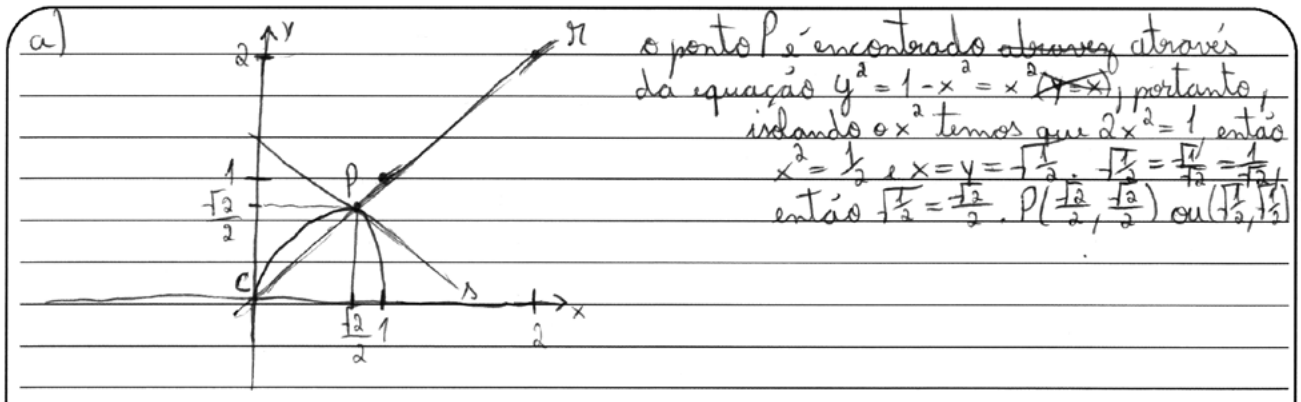 a)
y
2
r
1
P
√2/2
C
s
√2/2 1 2 x
o ponto P é encontrado através através
da equação y² = 1 - x² = x² (y = x), portanto,
isolando o x² temos que 2x² = 1, então
x² = 1/2 e x = y = √1/2. √1/2 = √1/√2 = 1/√2,
então √1/2 = √2/2. P(√2/2, √2/2) ou (√1/2, √1/2)